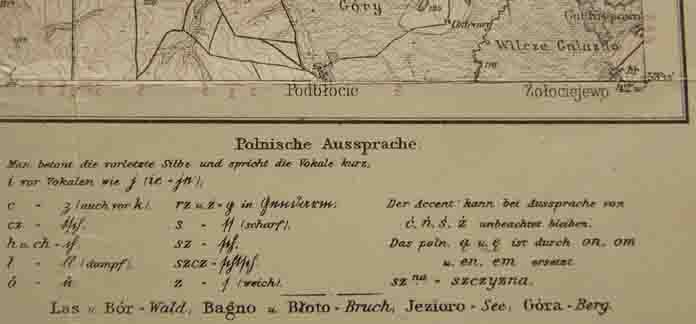 Góry
Wilcze Gniazdo
Podbłocie
Żołociejewo
Polnische Aussprache.
Man betont die vorletzte Silbe und spricht die Vokale kurz,
i vor Vokalen wie j (ie - je),
c - z (auch vor k). rz u. ż - g in Gendarm. Der Accent kann bei Aussprache von
cz - tsch. s - ss (scharf). ć, ń, ś, ź unbeachtet bleiben.
h u. ch - ch. sz - sch. Das poln. ą u. ę ist durch on, om
ł - ll (dumpf). szcz - schtsch. u. en, em ersetzt.
ó - u. z - s (weich). sz<sup>na</sup> - szczyzna.
Las u. Bór - Wald, Bagno u. Błoto - Bruch, Jezioro - See, Góra - Berg.